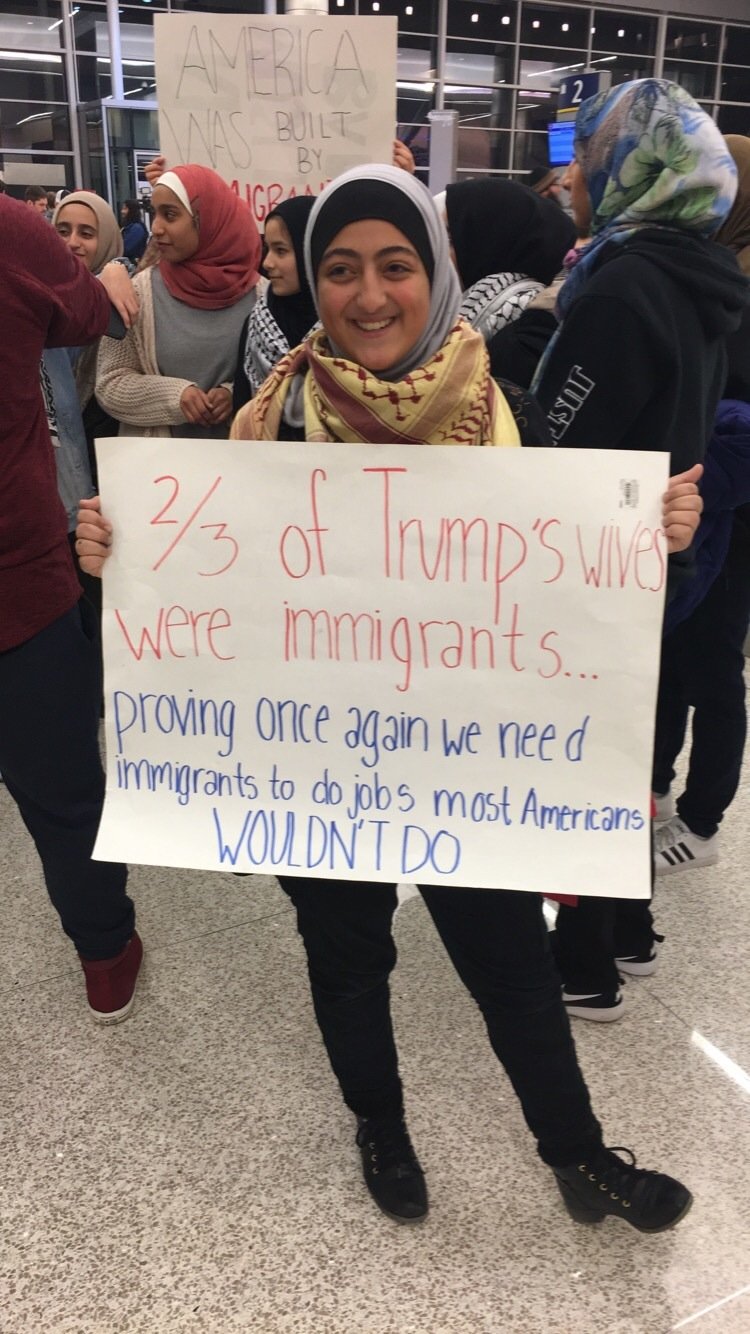 AMERICA
WAS BUILT
BY
2
JUST
2/3 of Trump's wives
were immigrants...
proving once again we need
immigrants to do jobs most Americans
WOULDN'T DO